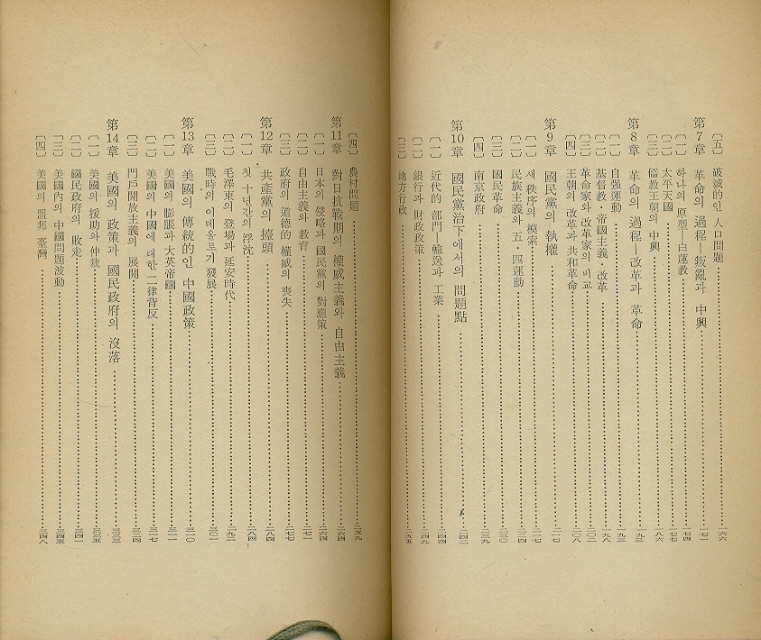 〔五〕 破滅的인 人口問題 一六六
第7章 革命의 過程—叛亂과 中興 一七一
〔一〕 하나의 原型—白蓮教 一七四
〔二〕 太平天國 一七七
〔三〕 儒教王朝의 中興 一八六
第8章 革命의 過程—改革과 革命 一九三
〔一〕 自强運動 一九三
〔二〕 基督教・帝國主義・改革 一九八
〔三〕 革命家와 改革家의 비교 二〇二
〔四〕 王朝의 改革과 共和革命 二〇八
第9章 國民黨의 執權 二一七
〔一〕 새 秩序의 模索 二一七
〔二〕 民族主義의 五・四運動 二二四
〔三〕 國民革命 二三〇
〔四〕 南京政府 二三九
第10章 國民黨治下에서의 問題點 二四三
〔一〕 近代的 部門—輸送과 工業 二四四
〔二〕 銀行과 財政政策 二四九
〔三〕 地方行政 二五五
〔四〕 農村問題 二五九
第11章 對日抗戰期의 權威主義와 自由主義 二六四
〔一〕 日本의 侵略과 國民黨의 對應策 二六四
〔二〕 自由主義와 教育 二七一
〔三〕 政府의 道德的 權威의 喪失 二七七
第12章 共産黨의 擡頭 二八四
〔一〕 첫 十년간의 浮沈 二八四
〔二〕 毛澤東의 登場과 延安時代 二九二
〔三〕 戰時의 이데올로기 發展 三〇一
第13章 美國의 傳統的인 中國政策 三一〇
〔一〕 美國의 膨脹과 大英帝國 三一一
〔二〕 美國의 中國에 대한 二律背反 三一七
〔三〕 門戶開放主義의 展開 三二四
第14章 美國의 政策과 國民政府의 沒落 三三三
〔一〕 美國의 援助와 仲裁 三三五
〔二〕 國民政府의 敗走 三四一
〔三〕 美國內의 中國問題波動 三四五
〔四〕 美國의 盟邦 臺灣 三四八